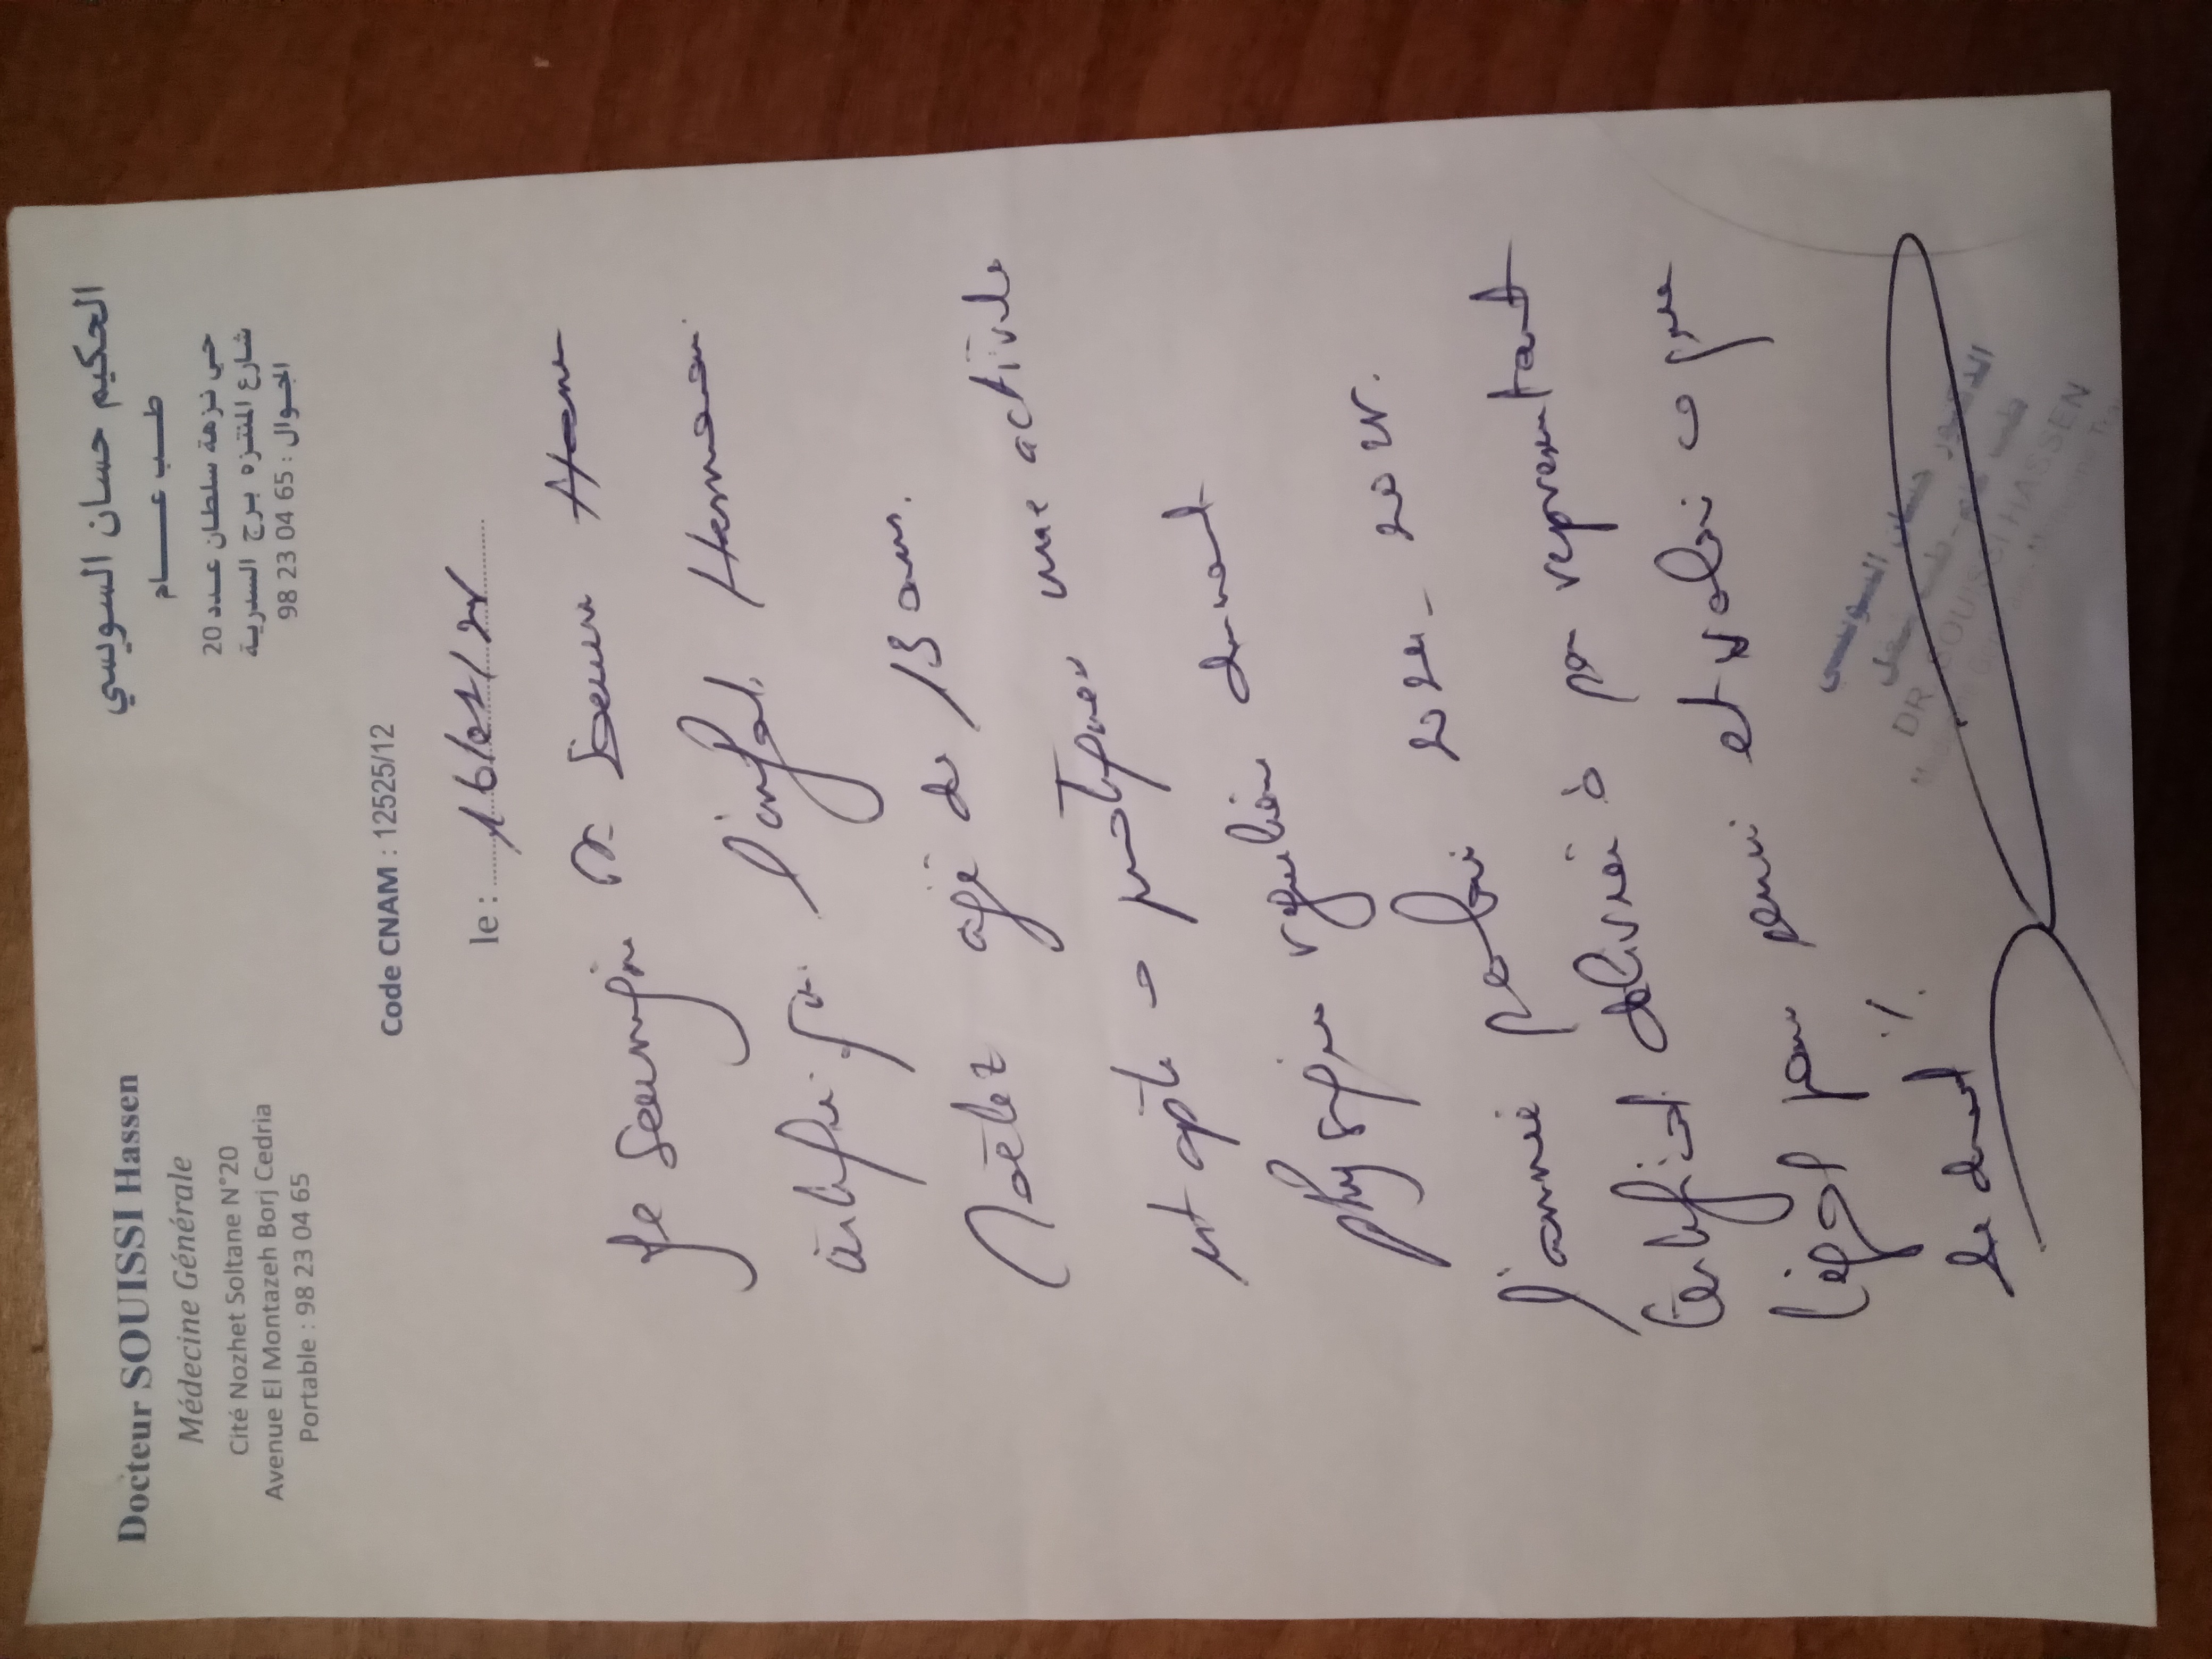 Docteur SOUISSI Hassen
Médecine Générale
Cité Nozhet Soltane N°20
Avenue El Montazeh Borj Cedria
Portable : 98 23 04 65
الحكيم حسان السويسي
طب عام
حي نزهة سلطان عدد 20
شارع المنتزه برج السدرية
الجوال : 98 23 04 65
Code CNAM : 12525/12
le :
Je Dr Souissi
certifie que l'enfant Hammami
agé de 13 ans.
est apte à pratiquer une activité
physique régulière durant
l'année
Certificat délivré à représentant
légal pour servir et valoir ce que
de droit ./.
الدكتور حسان السويسي
DR SOUISSI HASSEN